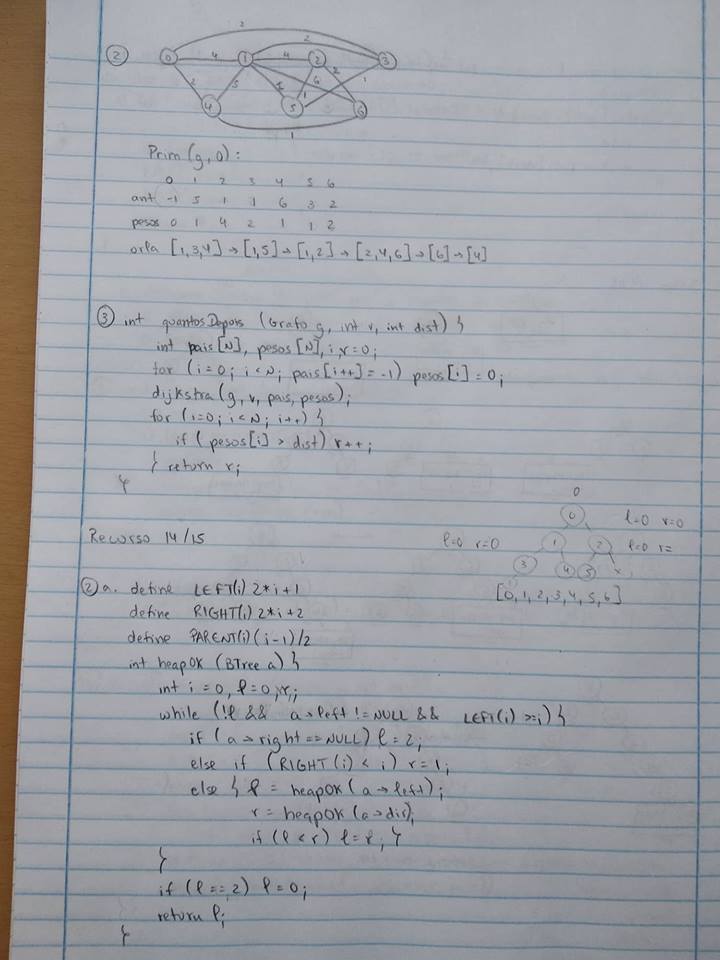 ②
2
0 4 1 4 2 3
2
2 5 6 2 1
4 5 1 6
1
Prim (g, 0) :
0 1 2 3 4 5 6
ant -1 5 1 1 6 3 2
pesos 0 1 4 2 1 1 2
orla [1,3,4] → [1,5] → [1,2] → [2,4,6] → [6] → [4]
③ int quantosDepois (Grafo g, int v, int dist) {
int pais [N], pesos [N], i, r=0;
for (i=0; i<N; pais[i++]=-1) pesos[i]=0;
dijkstra (g, v, pais, pesos);
for (i=0; i<N; i++) {
if (pesos[i] > dist) r++;
} return r;
}
Recurso 14/15
0
0 l=0 r=0
l=0 r=0 1 2 l=0 r=
3 4 5 x
[0,1,2,3,4,5,6]
② a. define LEFT(i) 2*i+1
define RIGHT(i) 2*i+2
define PARENT(i) (i-1)/2
int heapOK (BTree a) {
int i=0, l=0, r;
while (!l && a→left != NULL && LEFT(i) >=i) {
if (a→right == NULL) l=2;
else if (RIGHT(i) < i) r=1;
else { l = heapOK (a→left);
r = heapOK (a→dir);
if (l<r) l=r; }
}
if (l==2) l=0;
return l;
}